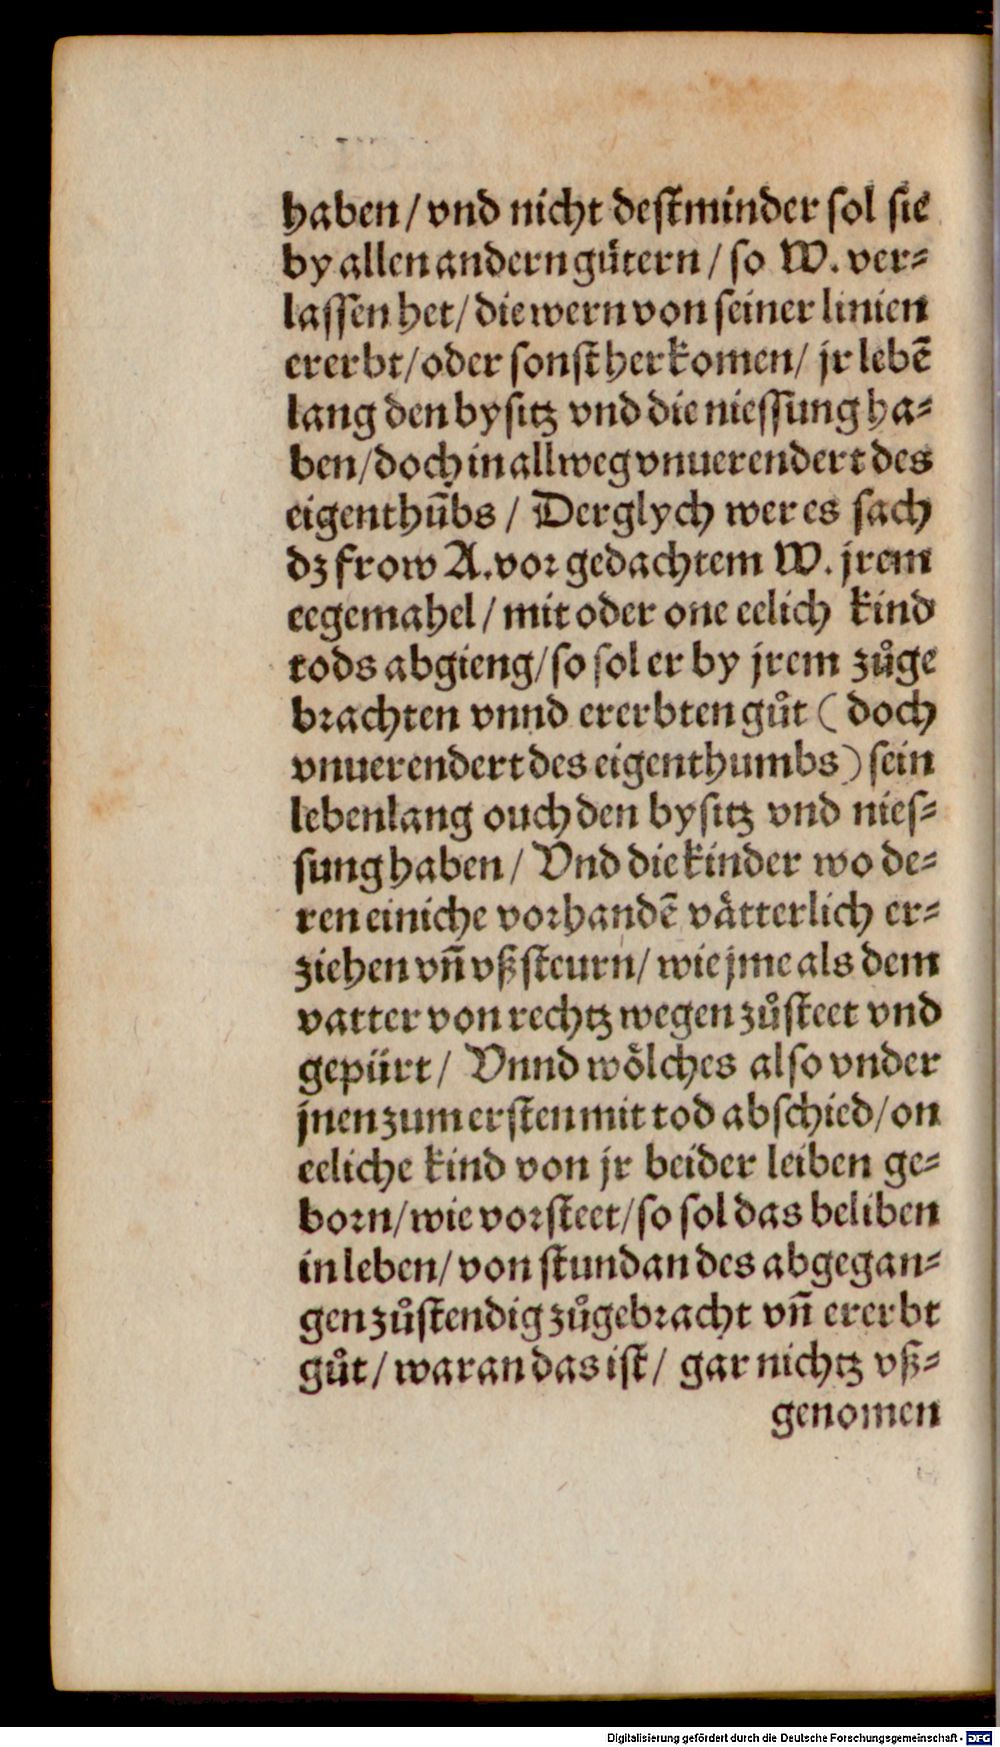 haben / vnd nicht destminder sol sie
by allen andern gütern / so W. ver⸗
lassen het / die wern von seiner linien
ererbt / oder sonst herkomen / jr lebē
lang den bysitz vnd die niessung ha⸗
ben / doch in allweg vnuerendert des
eigenthūbs / Derglych wer es sach
dz frow A. vor gedachtem W. jrem
eegemahel / mit oder one eelich kind
tods abgieng / so sol er by jrem zůge
brachten vnnd ererbten gůt ( doch
vnuerendert des eigenthumbs ) sein
lebenlang ouch den bysitz vnd nies⸗
sung haben / Vnd die kinder wo de⸗
ren einiche vorhandē vätterlich er⸗
ziehen vn̄ vßsteurn / wie jme als dem
vatter von rechtz wegen zůsteet vnd
gepürt / Vnnd wölches also vnder
jnen zum ersten mit tod abschied / on
eeliche kind von jr beider leiben ge⸗
born / wie vorsteet / so sol das beliben
in leben / von stund an des abgegan⸗
gen zůstendig zůgebracht vn̄ ererbt
gůt / waran das ist / gar nichtz vß⸗
genomen
Digitalisierung gefördert durch die Deutsche Forschungsgemeinschaft - DFG